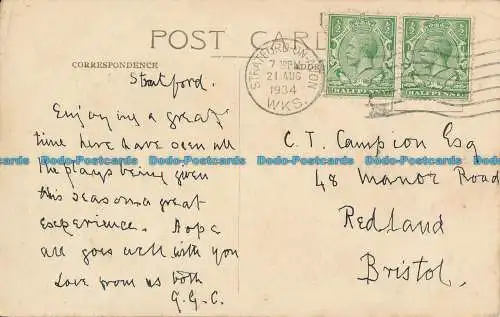 POST CARD
CORRESPONDENCE
ADDRE
STRATFORD-ON-AVON
7 PM
21 AUG
1934
WKS.
HALFPENNY
HALFPENNY
Stratford.
Enjoying a great
time here have seen all
the plays being given
this season a great
experience. Hope
all goes well with you
Love from us both
G.G.C.
C. T. Campion Esq
48 Manor Road
Redland
Bristol.
Dodo-Postcards Dodo-Postcards Dodo-Postcards Dodo-Postcards